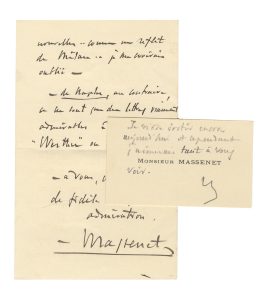 nouvelles — comme un reflet
de Milan — je me croirais
oublié —
— de Naples, au contraire,
on ne lit que des lettres vraiment
admirables à
Werther
— à vous,
de fidèle
admiration.
— Massenet
Je n'ose sortir encore
aujourd'hui et cependant
j'aimerais tant à vous
MONSIEUR MASSENET
voir.